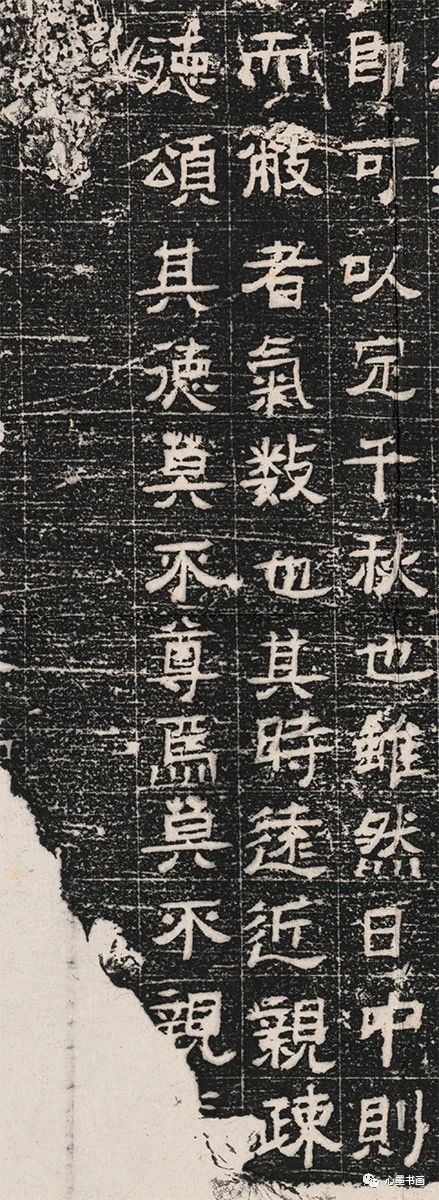 即可以定千秋也雖然日中則
而敝者氣數也其時遠近親疎
德頌其德莫不尊焉莫不親
心墨书画